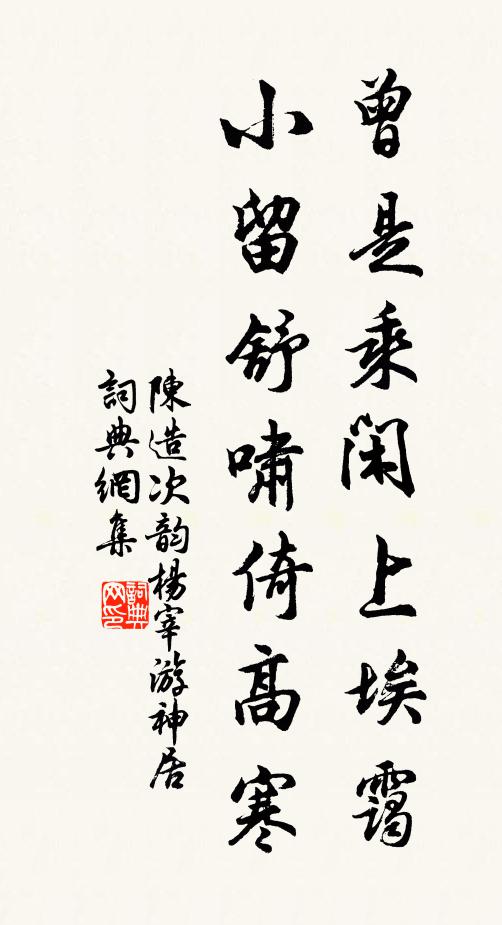 曾是乘閑上埃靄
小留舒嘯倚高寒
陳造次韵楊宰游神居
詞典網集
詞典
网印